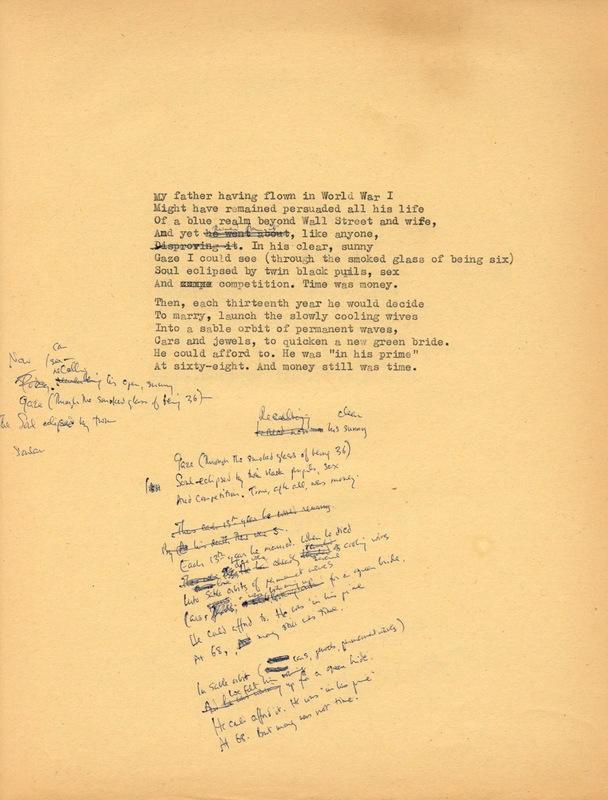 My father having flown in World War I
Might have remained persuaded all his life
Of a blue realm beyond Wall Street and wife,
And yet he went about, like anyone,
Disproving it. In his clear, sunny
Gaze I could see (through the smoked glass of being six)
Soul eclipsed by twin black pupils, sex
And competition. Time was money.
Then, each thirteenth year he would decide
To marry, launch the slowly cooling wives
Into a sable orbit of permanent waves,
Cars and jewels, to quicken a new green bride.
He could afford to. He was "in his prime"
At sixty-eight. And money still was time.
can
Now
recalling
remembering his open, sunny
Gaze (through the smoked glass of being 36)
The Soul eclipsed by twin
Recalling clear
his sunny
Gaze (through the smoked glass of being 36)
Soul eclipsed by twin black pupils, sex
And competition. Time, after all, was money.
Thus each 13th year he would
By his death there were 3.
Each 13th year he married. When he died
already cooling wives
Into sable orbits of permanent waves
Cars, for a green bride.
He could afford to. He was "in his prime"
At 68, money still was time.
In sable orbit (cars, jewels, permanent waves)
We felt him up for a green bride.
He could afford it. He was "in his prime"
At 68. But money was not time.